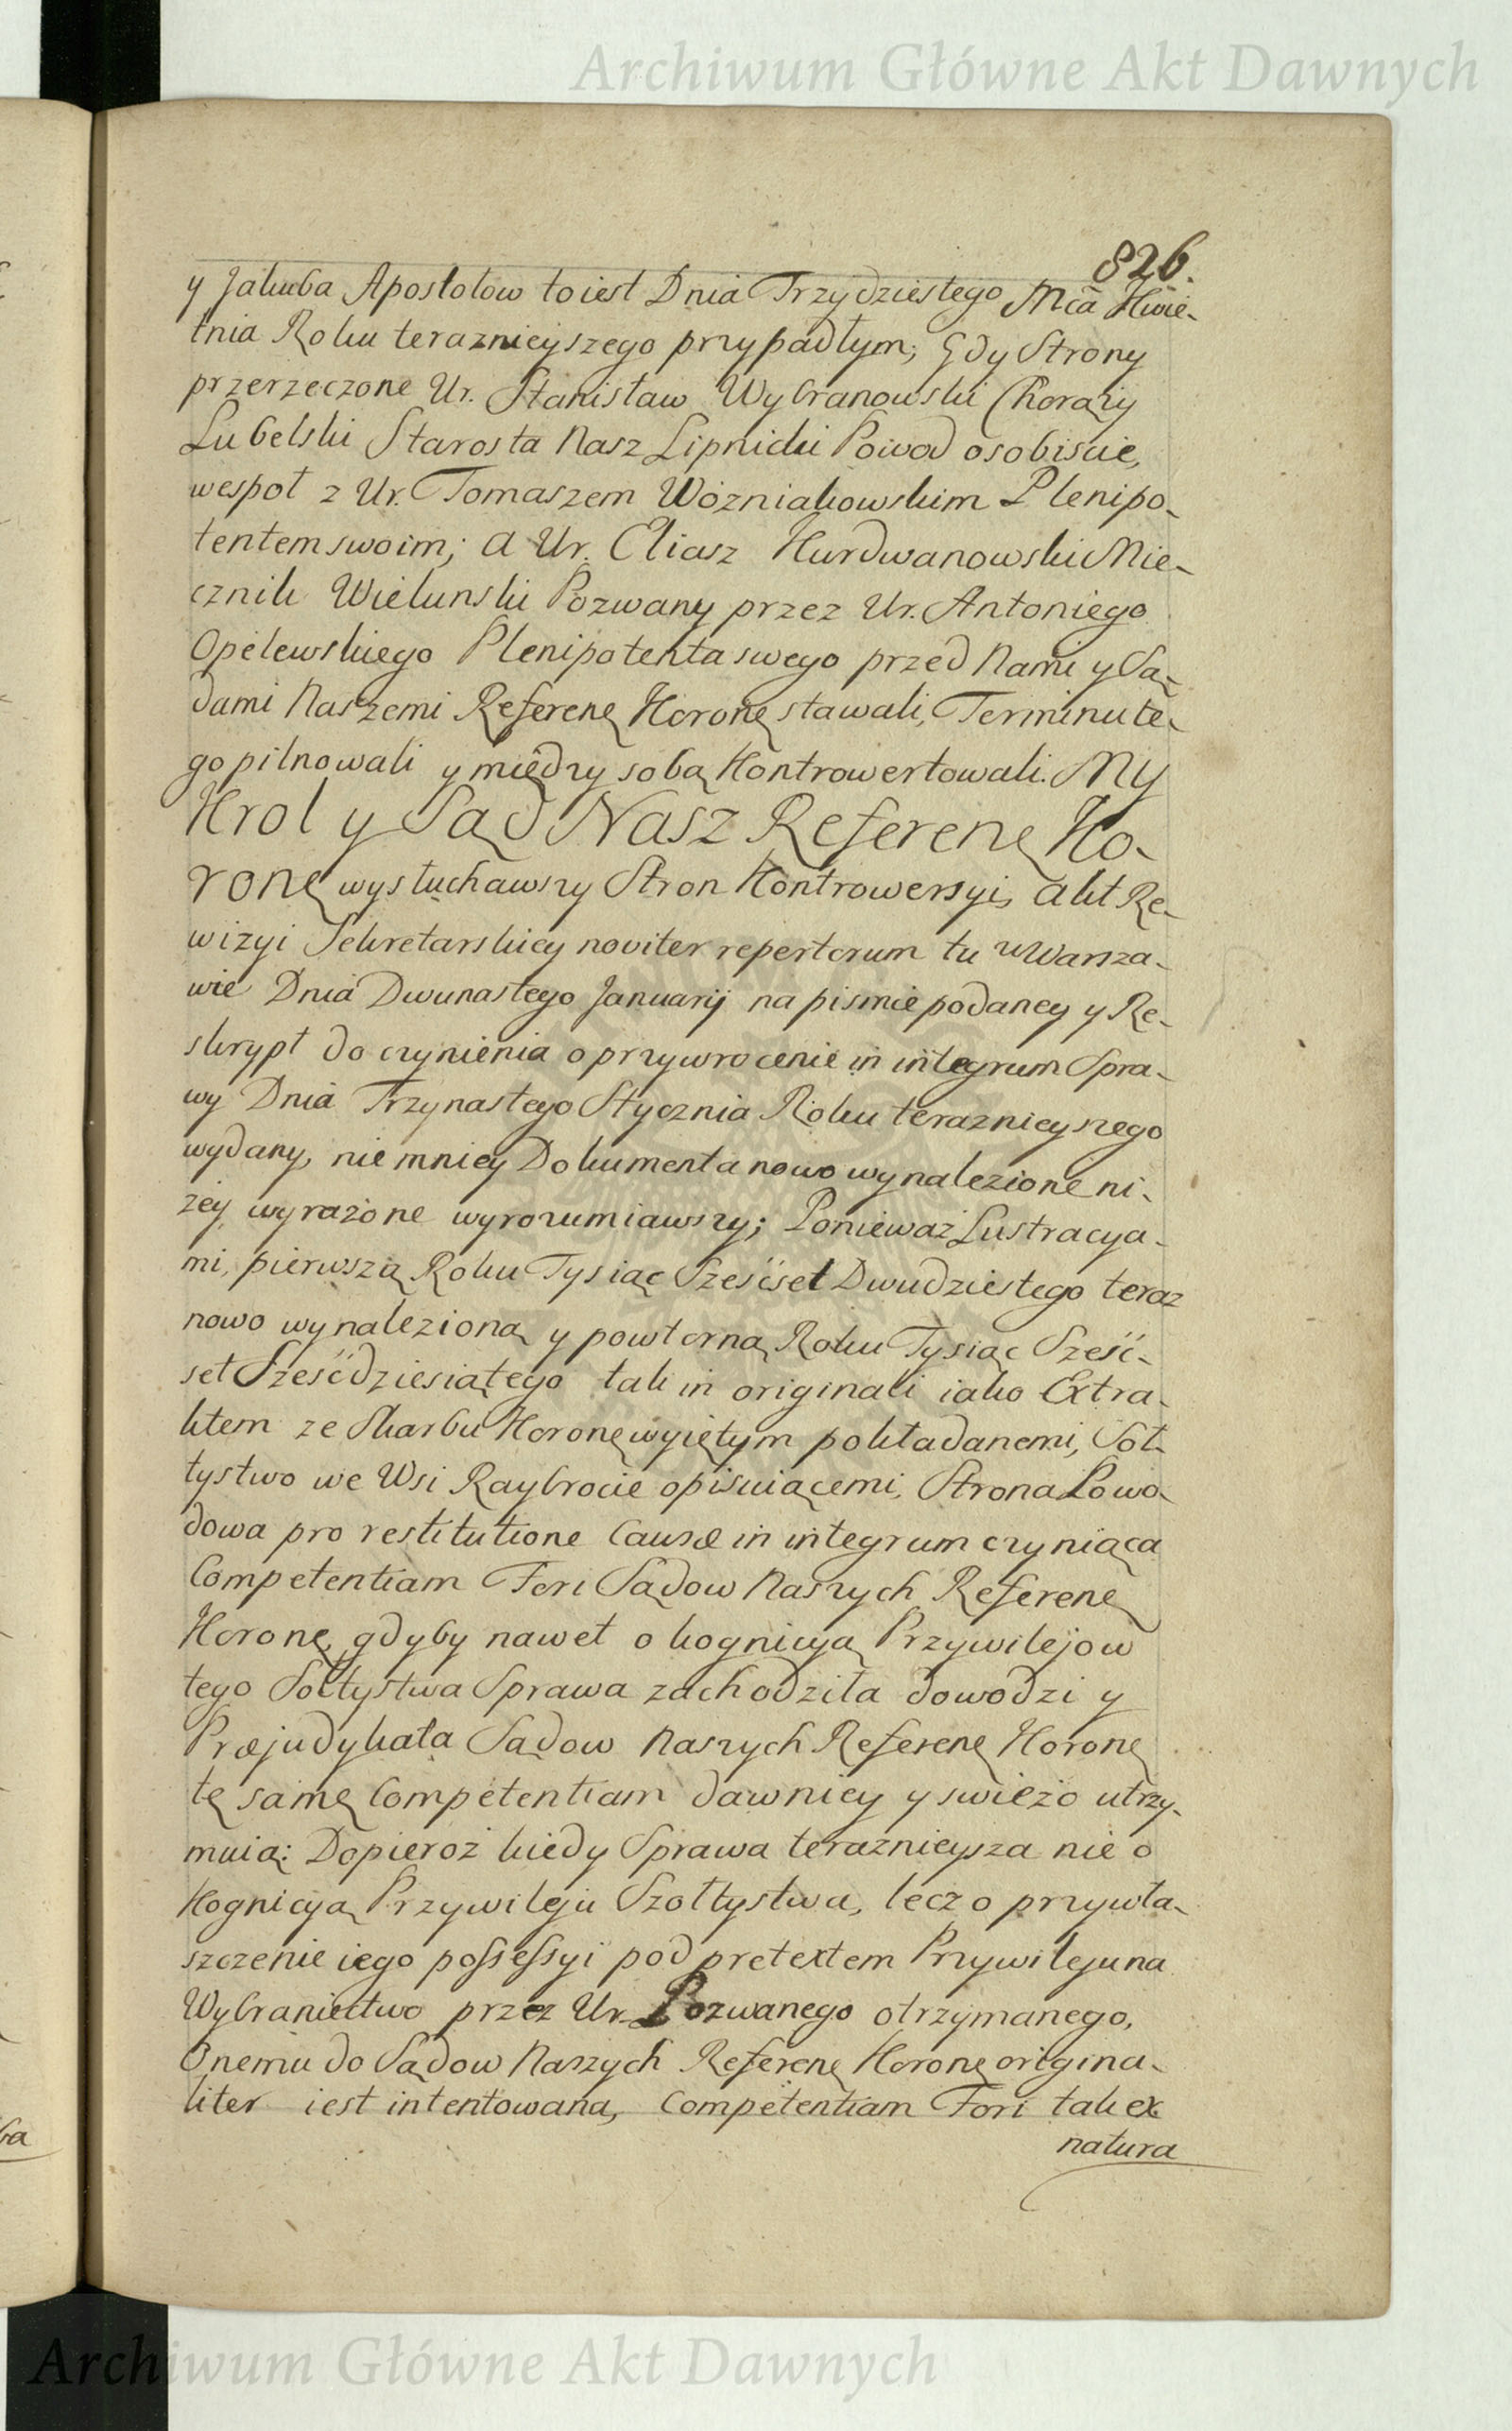 Archiwum Główne Akt Dawnych
826.
y Jakuba Apostołow to iest Dnia Trzydziestego Mca Kwie-
tnia Roku teraznieyszego przypadłym; Gdy Strony
przerzeczone Ur. Stanisław Wybranowski Chorąży
Lubelski Starosta Nasz Lipnicki Powod osobiscie,
wespoł z Ur. Tomaszem Wozniakowskim Plenipo-
tentem swoim; a Ur. Eliasz Hurdwanowski Mie-
cznik Wielunski Pozwany przez Ur. Antoniego
Opelewskiego Plenipotenta swego przed Nami y Są-
dami Naszemi Referenę Koronę stawali, Terminu te-
go pilnowali y między sobą Kontrowertowali. My
Krol y Sąd Nasz Referenę Ko-
ronę wysłuchawszy Stron Kontrowersyi, akt Re-
wizyi Sekretarskiey noviter repertorum tu w Warsza-
wie Dnia Dwunastego Januarij na pismie podaney y Re-
skrypt do czynienia o przywrocenie in integrum Spra-
wy Dnia Trzynastego Stycznia Roku teraznieyszego
wydany, nie mniey Dokumenta nowo wynalezione ni-
żey wyrażone wyrozumiawszy; Ponieważ Lustracya-
mi, pierwszą Roku Tysiąc Sześćset Dwudziestego teraz
nowo wynalezioną y powtorną Roku Tysiąc Sześć-
set Sześćdziesiątego tak in originali iako Extra-
ktem ze Skarbu Koronę wyiętym pokładanemi, Soł-
tystwo we Wsi Raybrocie opisuiącemi, Strona Powo-
dowa pro restitutione Causæ in integrum czyniąca
Competentiam Fori Sądow Naszych Referenę
Koronę, gdyby nawet o kognicyą Przywilejow
tego Sołtystwa Sprawa zachodziła dowodzi y
Præjudykata Sądow Naszych Referenę Koronę
tę samę Competentiam dawniey y swieżo utrzy-
muią: Dopieroż kiedy Sprawa teraznieysza nie o
Kognicyą Przywileju Szołtystwa, lecz o przywła-
szczenie iego possessyi pod pretextem Przywileju na
Wybraniectwo przez Ur. Pozwanego otrzymanego,
Onemu do Sądow Naszych Referenę Koronę origina-
liter iest intentowana, Competentiam Fori tak ex
natura
Archiwum Główne Akt Dawnych